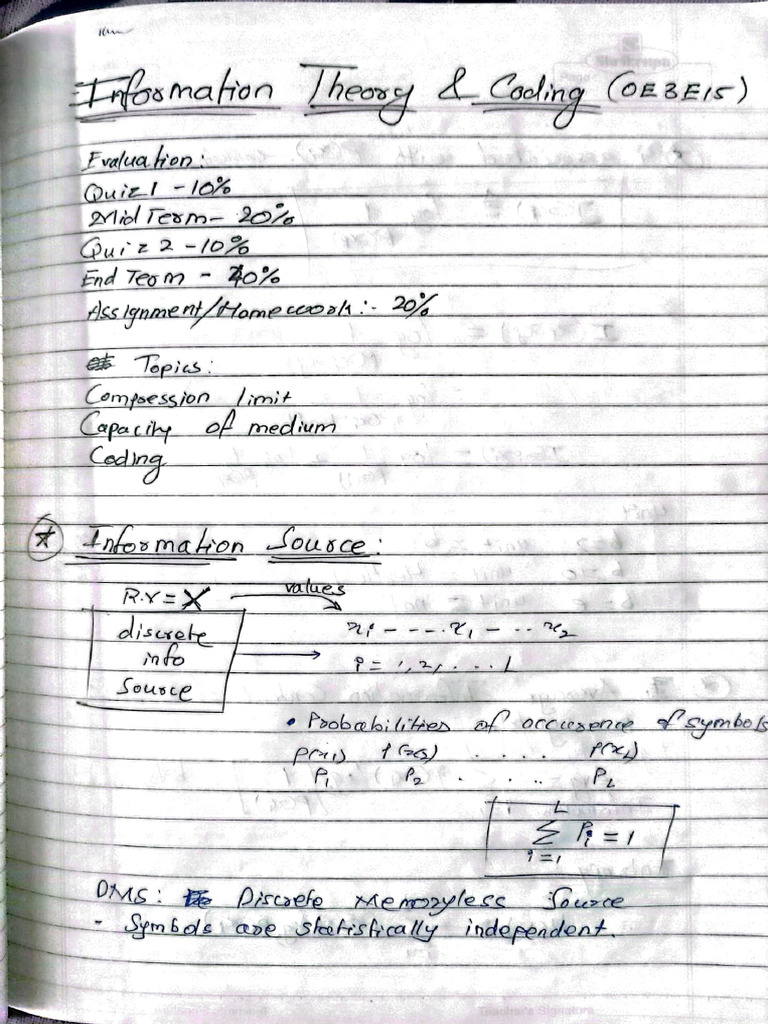 Information Theory & Coding (OE3E15)
Evaluation:
Quiz 1 - 10%
Mid Term - 20%
Quiz 2 - 10%
End Term - 40%
Assignment/Homework:- 20%
Topics:
Compression limit
Capacity of medium
Coding
* Information Source:
R.V = X values
discrete
info
Source
xi - - -. x1 - .. x2
i = 1, 2, . . . L
• Probabilities of occurence of symbols
P(x1) P(x2) . . . . P(xL)
P1 P2 . . .. PL
L
Σ Pi = 1
i=1
DMS: Discrete Memoryless Source
- Symbols are statistically independent.
Teacher's Signature